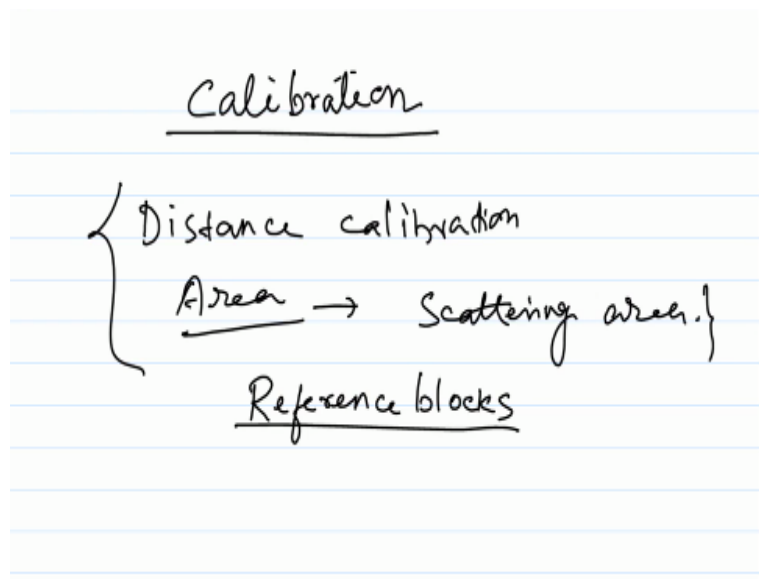 Calibration
Distance calibration
Area → Scattering area.}
Reference blocks